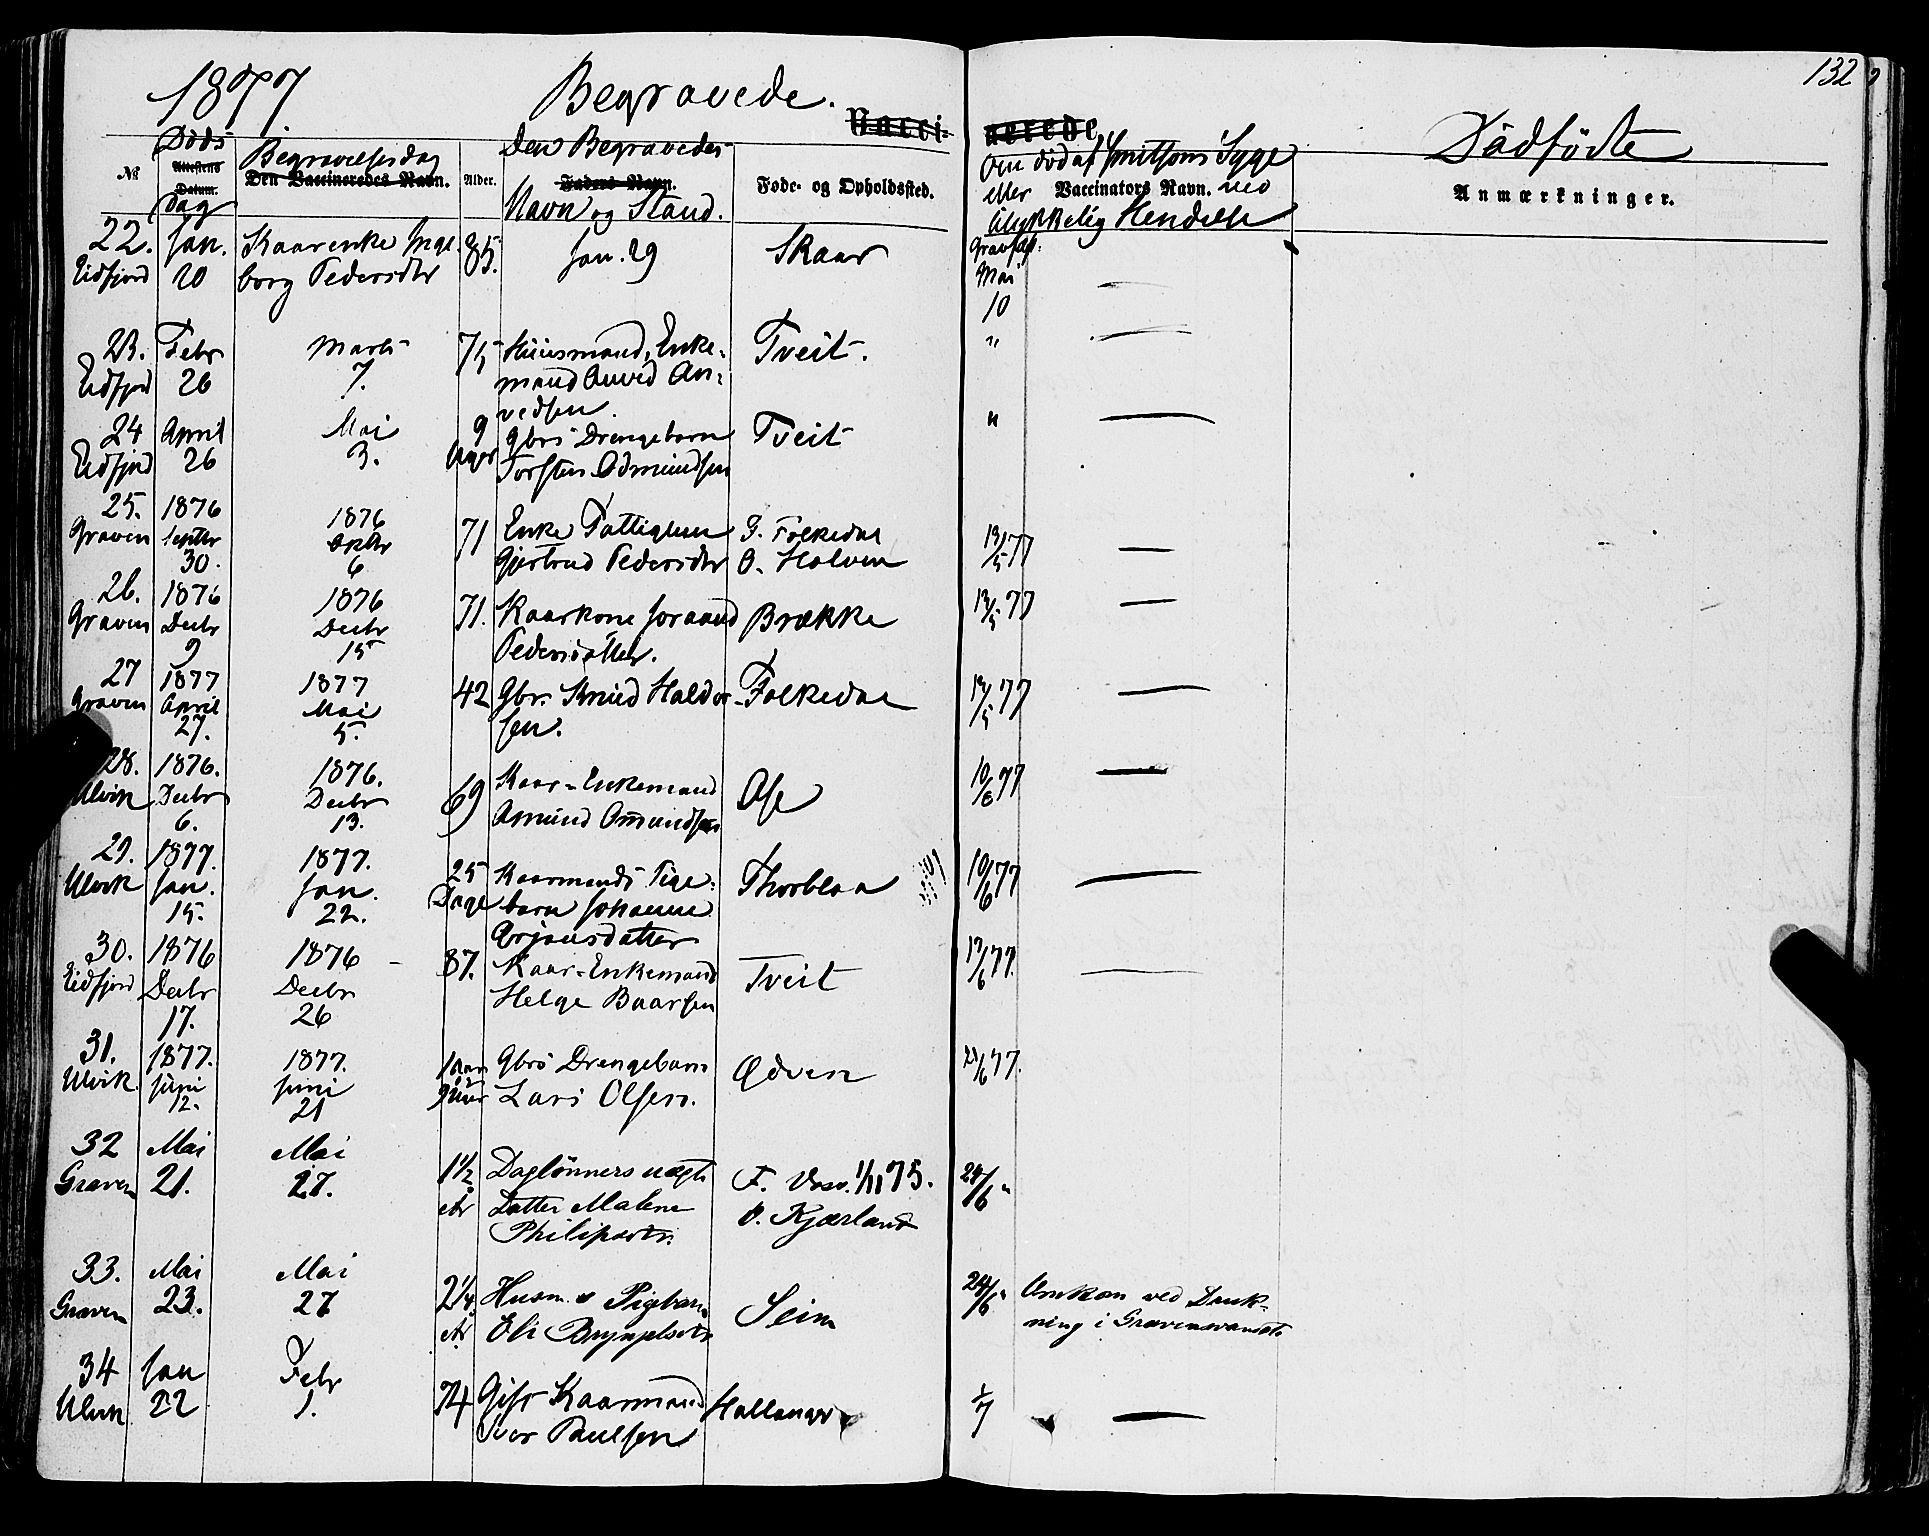 1877 Begravede. 132
Vacci- nerede
Døds Begravelsesdag Den Begravedes Om død af smitsom Syge Dødfødte
№ Attestens Datum. Den Vaccineredes Navn. Alder. Faders Navn. Føde- og Opholdssted. eller Vaccinators Navn. ved Anmærkninger.
dag Navn og Stand. ulykkelig Hendelse
22. Jan. Kaarenke Inge- 85. Jan. 29 Skaar Gravfæst:
Eidfjord 20 borg Pedersdtr Mai —
10
23. Febr Marts 75 Huusmand, Enke- Tveit. " —
Eidfjord 26 7. mand Anved An-
vedsen.
24 April Mai 9 Gbrs Drengebarn Tveit " —
Eidfjord 26 3. Uger Torsten Odmundsen
25. 1876 1876 71 Enke Fattiglem F. Folkedal 13/5 77 —
Graven Septbr Oktbr Gjertrud Pedersdtr O. Holven
30. 6
26. 1876 1876 71. Kaarkone Joraand Brække 13/5 77 —
Graven Decbr Decbr Pedersdatter.
9 15
27 1877 1877 42 Gbr. Knud Haldor- Folkedal 13/5 77 —
Graven April Mai sen.
27. 5.
28. 1876. 1876. 69 Kaar-Enkemand Ose 10/6 77 —
Ulvik Decbr Decbr Amund Omundsen
6. 13.
29. 1877. 1877. 25 Kaarmands Pige- Thorblaa 10/6 77 —
Ulvik Jan. Jan. Dage barn Johanne
15. 22. Ørjansdatter
30. 1876 1876 87. Kaar-Enkemand Tveit 17/6 77. —
Eidfjord Decbr Decbr Helge Baarsen
17. 26
31. 1877. 1877. 1 Aar Gbrs Drengebarn Ødven 21/6 77.
Ulvik Juni Juni Lars Olsen.
12. 21
32 Mai Mai 1½ Daglønners uægte F. Voss. 1/11 75. 24/6 "
Graven 21. 27. År Datter Malene O. Kjærland
Philipsdtr.
33. Mai Mai 2¼ Husm. s Pigebarn Seim 24/6 " Omkom ved Druk-
Graven 23. 27 År Eli Brynjelsdtr ning i Gravensvandet.
34 Jan Febr 74 Gift Kaarmand Hallanger 1/7 —
Ulvik 22 1. Ivar Paulsen